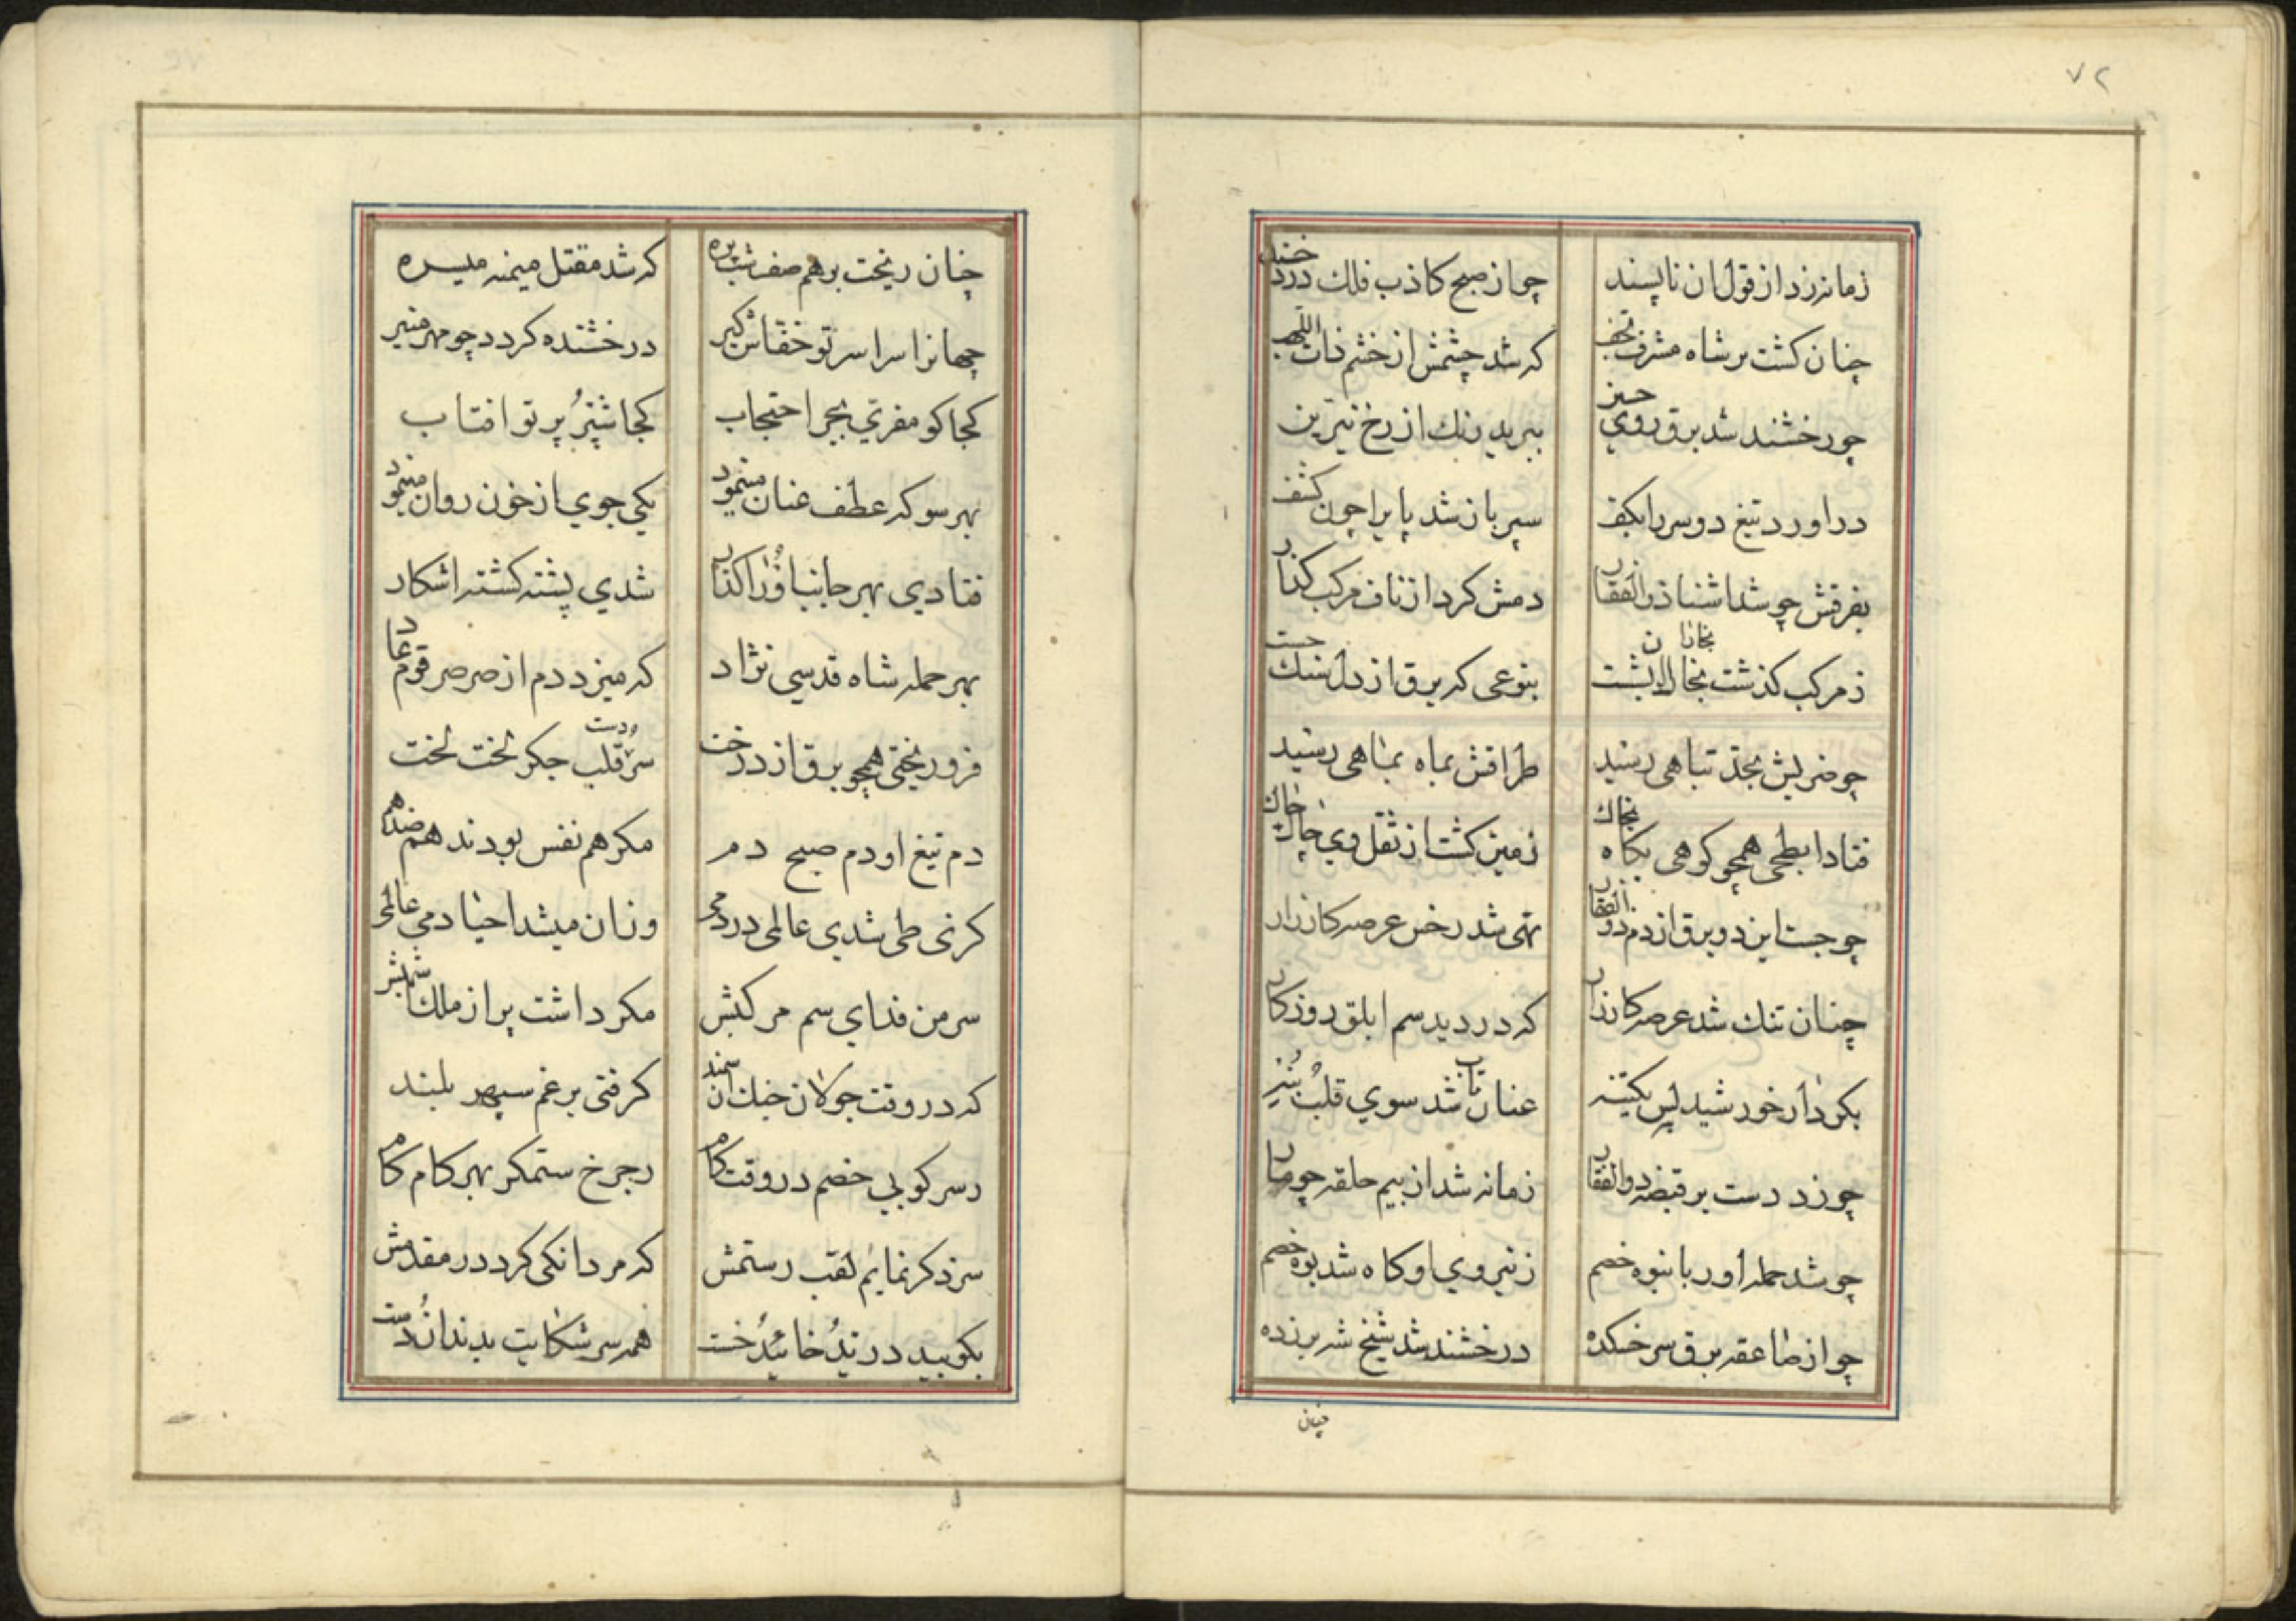 ۷۲
زمانه زد از قول ان ناپسند
چو از صبح کاذب فلك درد خند
چنان کشت بر شاه مشرف نجف
که شد چشمش از ختم ذات اللهب
چو رخشند شد برق روي
ببرید رنك از رخ نیرین
در اورد تیغ دو سر را بکف
سپر باز شد پا برا چون کشف
بفرقش چو شد اشنا ذوالفقار
دمش کرد از ناف مرکب کذار
ز مرکب کذشت
بنوعی که برق از دل سنك جست
چو ضربش بحد تباهی رسید
طراقش بماه بماهی رسید
فتاد ابطحی همچو کوهی بخاك
زمین کشت از ثقل وي چاك چاك
چو جست این دو برق از دم ذوالفقار
تهی شد رخس عرصه کارزار
چنان تنك شد عرصه کارزار
که در دید سم ابلق روزکار
بکردار خورشید پس یکتنه
عنان تاب شد سوي قلب
چو زد دست بر قبضه ذوالفقار
زمانه شد از بیم حلقه چو مار
چو شد حمله اور بانبوه خصم
ز نیروي او کاه شد بوه خصم
چو از صاعقه برق سر خسکده
درخشند شد شیخ شر بر زده
چنان
چنان ریخت برهم صف
که شد مقتل میمنه میسره
جهانرا سراسر تو خفاش کیر
درخشنده کردد چو مهر منیر
کجا کو مفری بجر احتجاب
کجا شپر پرتو افتاب
بهر سو که عطف عنان مینمود
یکی جوي از خون روان مینمود
فتادي بهر جانب اورا کذار
شدي پشته کشته اشکار
بهر حمله شاه قدسي نژاد
که میزد دم از صرصر قوم عاد
فرو ریختی همچو برق از درخت
سر و دست قلب جکر لخت لخت
دم تیغ او دم صبح دم
مکر هم نفس بودند هم
کز ني طی شدي عالمی در دمی
وزان میشد احیا دمي عالمی
سر من فداي سم مرکبش
مکر داشت پر از ملك
که در وقت جولان خنك ان سمند
کرفتی برغم سپهر بلند
بسر کوبی خصم در وقت کام
ز چرخ ستمکر بهر کام کام
سزد کر نمایم لقب رستمش
که مردانکی کرد در مقدمش
بکوبید در
همه سر شکایت بدندان دست